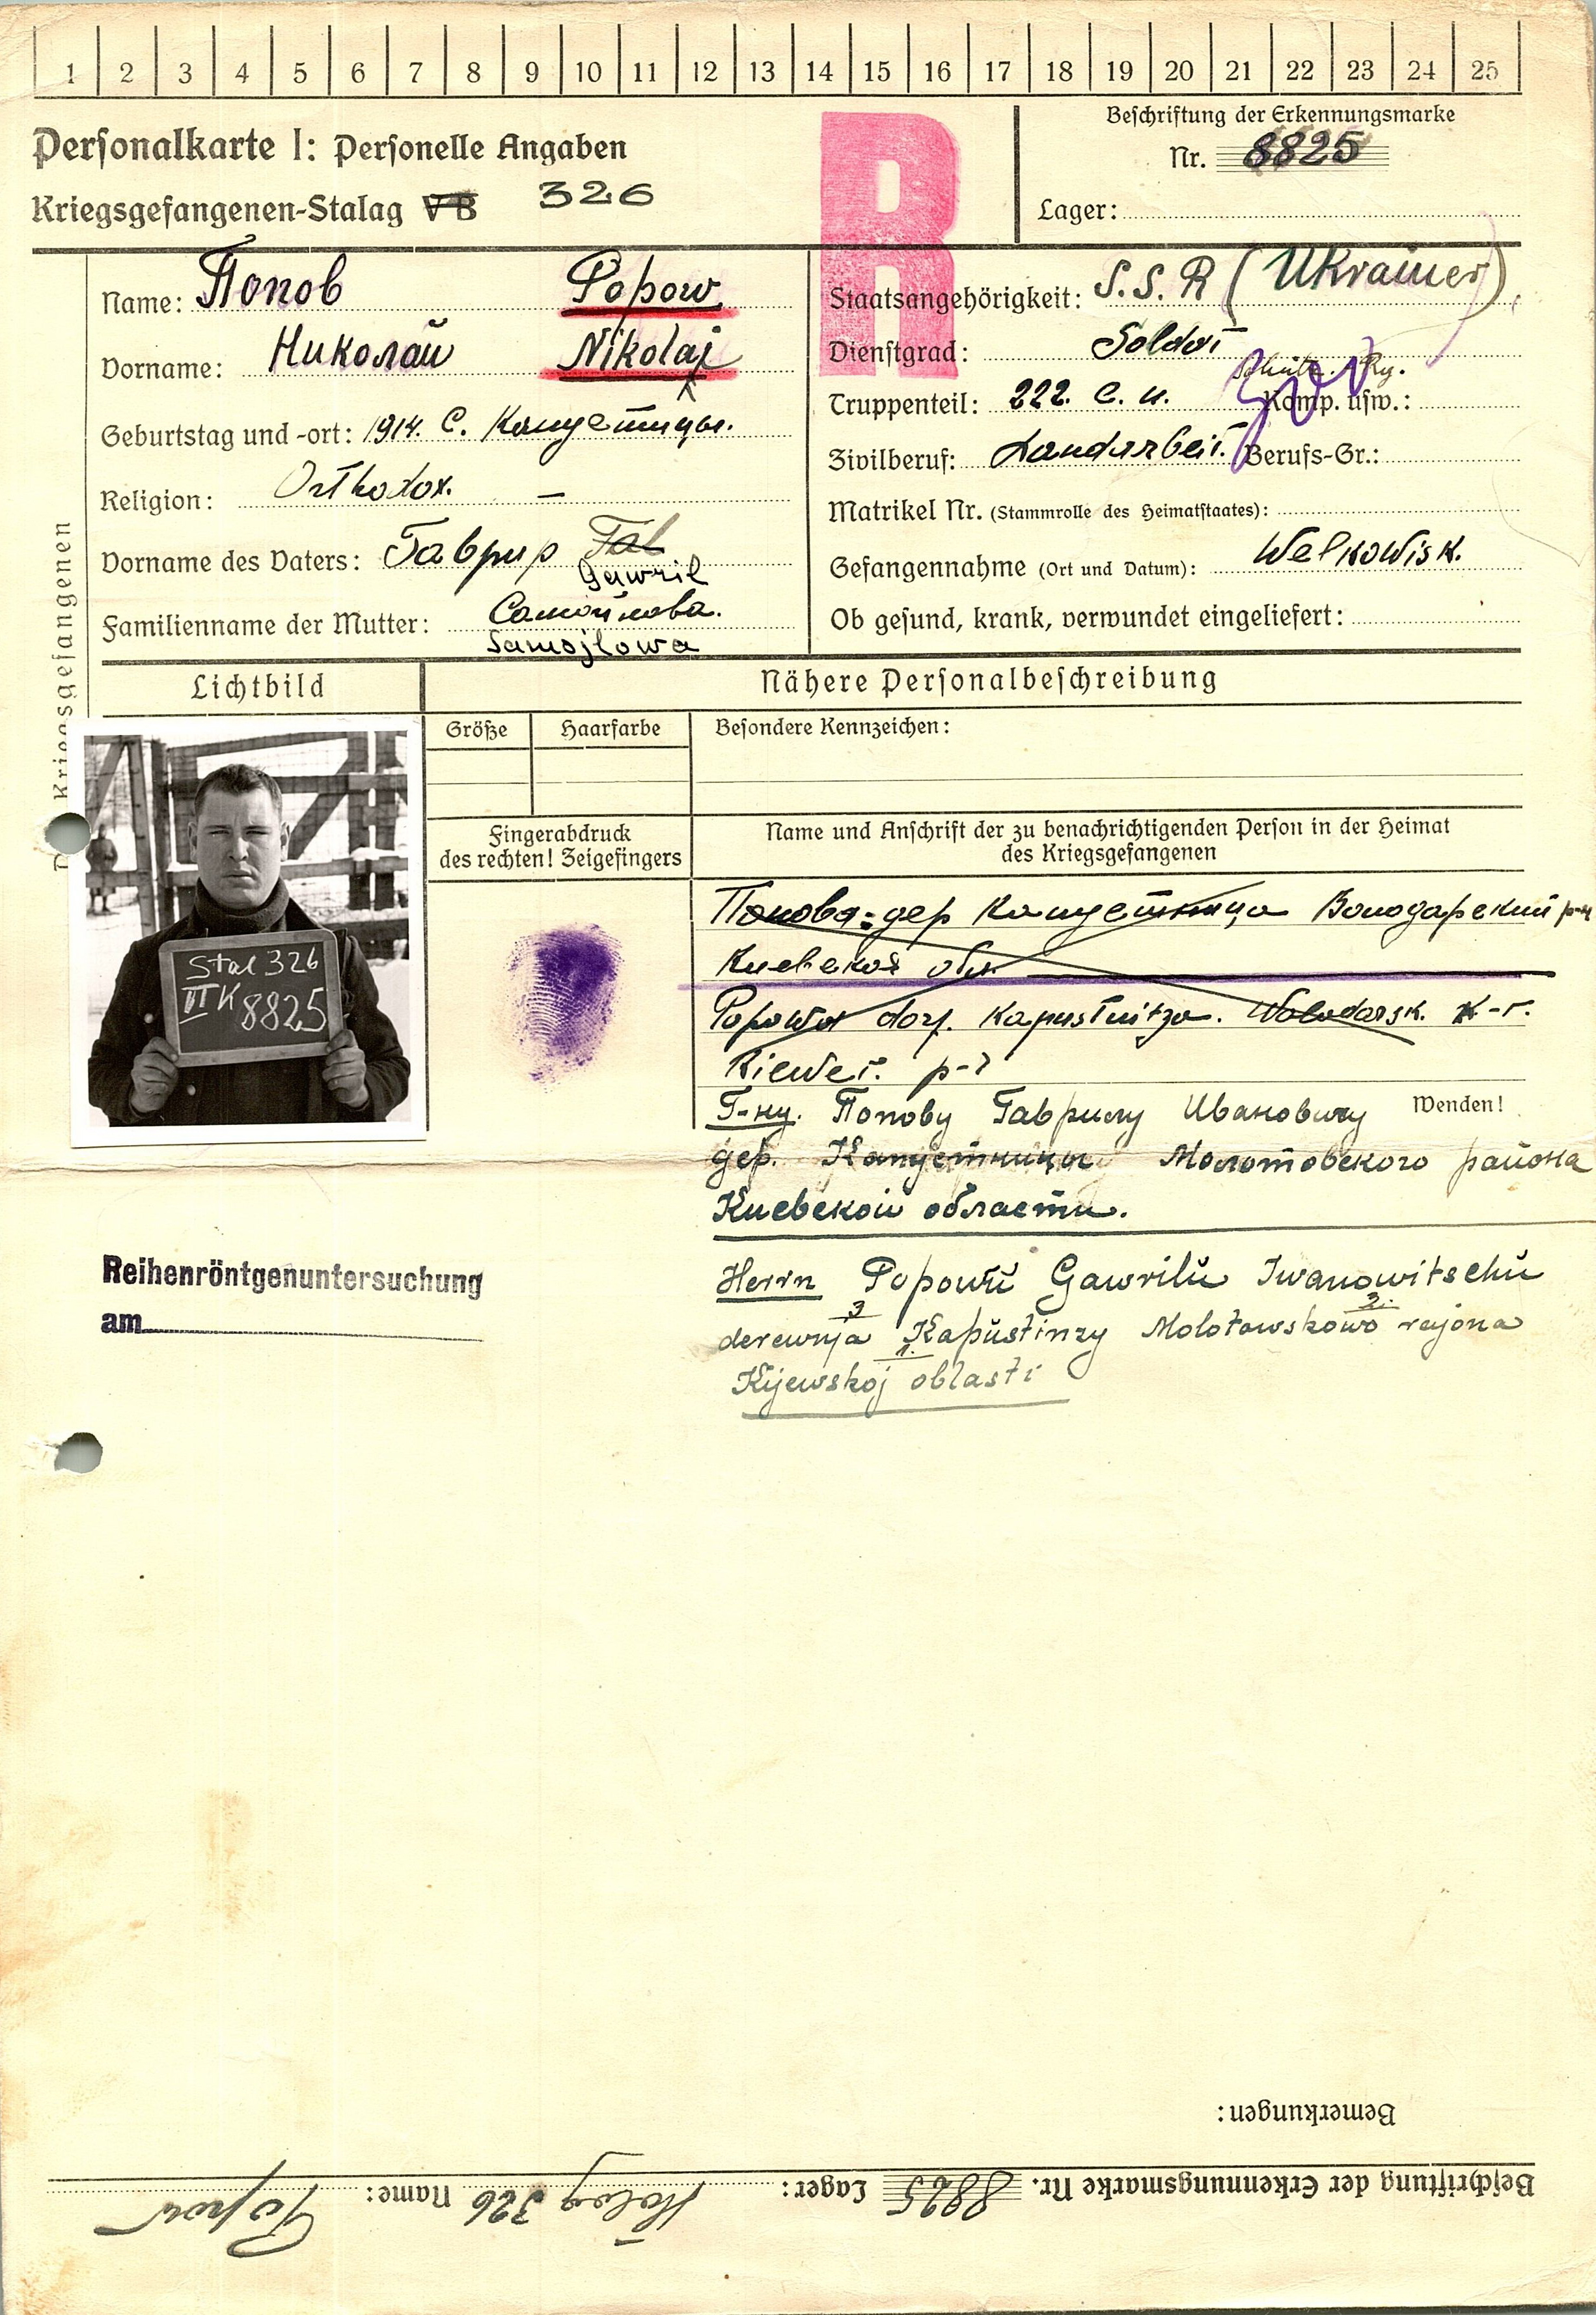 1 2 3 4 5 6 7 8 9 10 11 12 13 14 15 16 17 18 19 20 21 22 23 24 25
Personalkarte I: Personelle Angaben
Kriegsgefangenen-Stalag V B 326
R
Beschriftung der Erkennungsmarke
Nr. 8825
Lager:
Kriegsgefangenen
Name: Попов Popow
Vorname: Николай Nikolaj
Geburtstag und -ort: 1914. С.
Religion: Orthodox. —
Vorname des Vaters: Гаврир Gawril
Familienname der Mutter: Самойлова.
Samojlowa
Staatsangehörigkeit: S.S.R (Ukrainer)
Dienstgrad: Soldat
Truppenteil: 222. с. п. Komp. usw.:
Zivilberuf: Landarbeit. Berufs-Gr.:
Matrikel Nr. (Stammrolle des Heimatstaates):
Gefangennahme (Ort und Datum): Welkowisk.
Ob gesund, krank, verwundet eingeliefert:
Lichtbild
Nähere Personalbeschreibung
Größe
Haarfarbe
Besondere Kennzeichen:
Stal 326
VI K 8825
Fingerabdruck
des rechten! Zeigefingers
Name und Anschrift der zu benachrichtigenden Person in der Heimat
des Kriegsgefangenen
Попова-дер Капустница Володарский р-н
Киевской обл
Popowa dorf. Kapustnitza. Wolodarsk.
Г-ну. Попову Гаврилу Ивановичу
Wenden!
дер. Капустницы Молотовского района
Киевской области.
Herrn Popowu Gawrilu Iwanowitschu
derewnja Kapustinzy Molotowskowo rajona
Kijewskoj oblasti
Reihenröntgenuntersuchung
am
Bemerkungen:
Beschriftung der Erkennungsmarke Nr. 8825 Lager: Stalag 326 Name: Popow